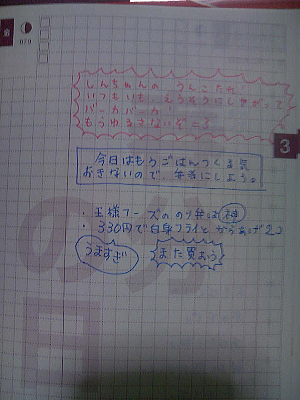 しんちゃんの うんこたれ!
いつもいつも えらそうにしやがって
バーカバーカ
もうゆるさないぞー3
今日はもうごはんつくる気
おきないので、弁当にしよう。
・王様フーズののり弁は神
・330円で白身フライとからあげ2コ
うますぎ
また買おう
3